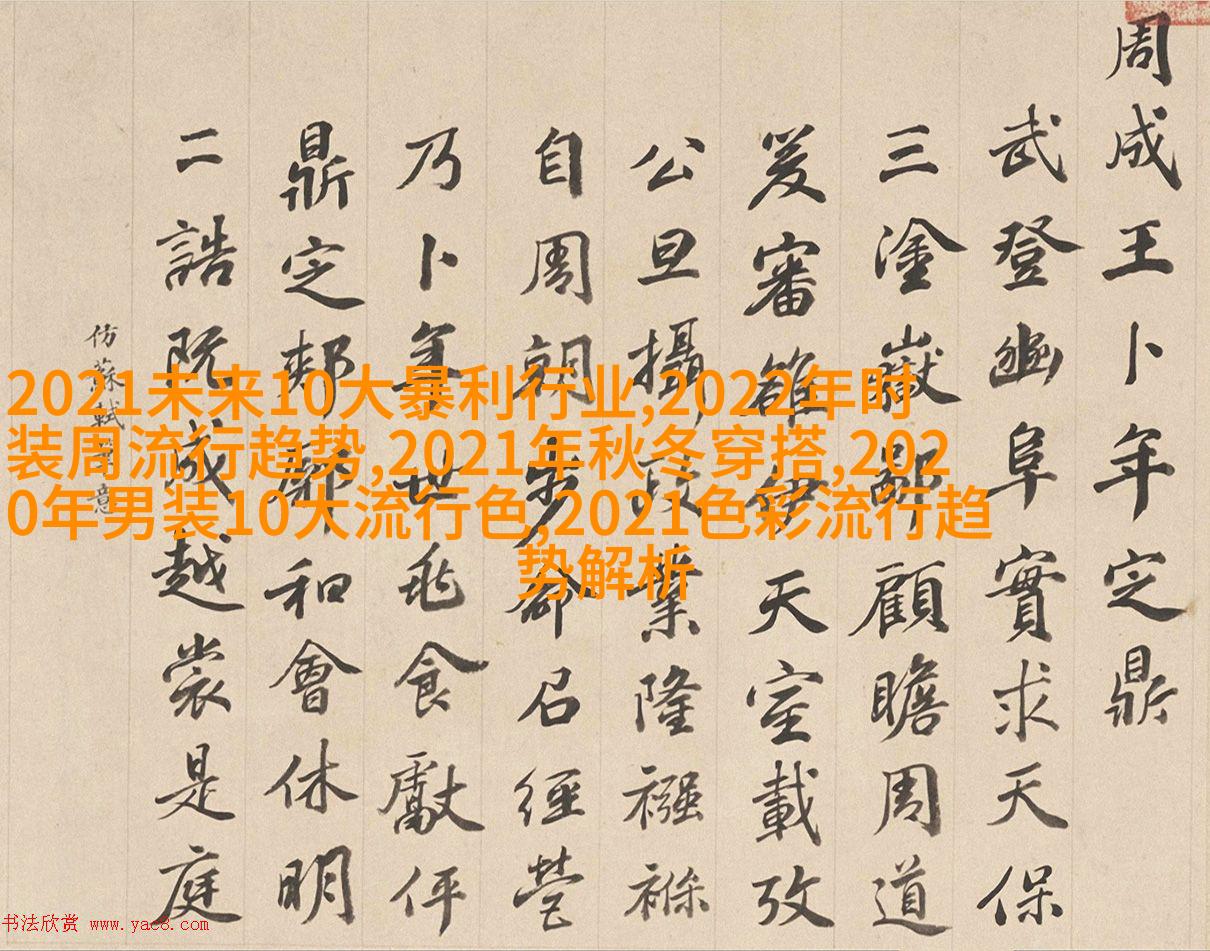 周成王卜年定鼎
武登豳阜實求天保
三塗嶽鄙顧瞻周道
爰審雒伊天室載攷
公旦攝政業隆襁褓
自周朝步命召經營
乃卜年世兆食獻伻
鼎定郟鄏和會休明
二誥既成越裳是庭
仿蘇軾筆意
2021未来10大暴利行业,2022年时
装周流行趋势,2021年秋冬穿搭,202
0年男装10大流行色,2021色彩流行趋
势解析
书法欣赏 www.yac8.com